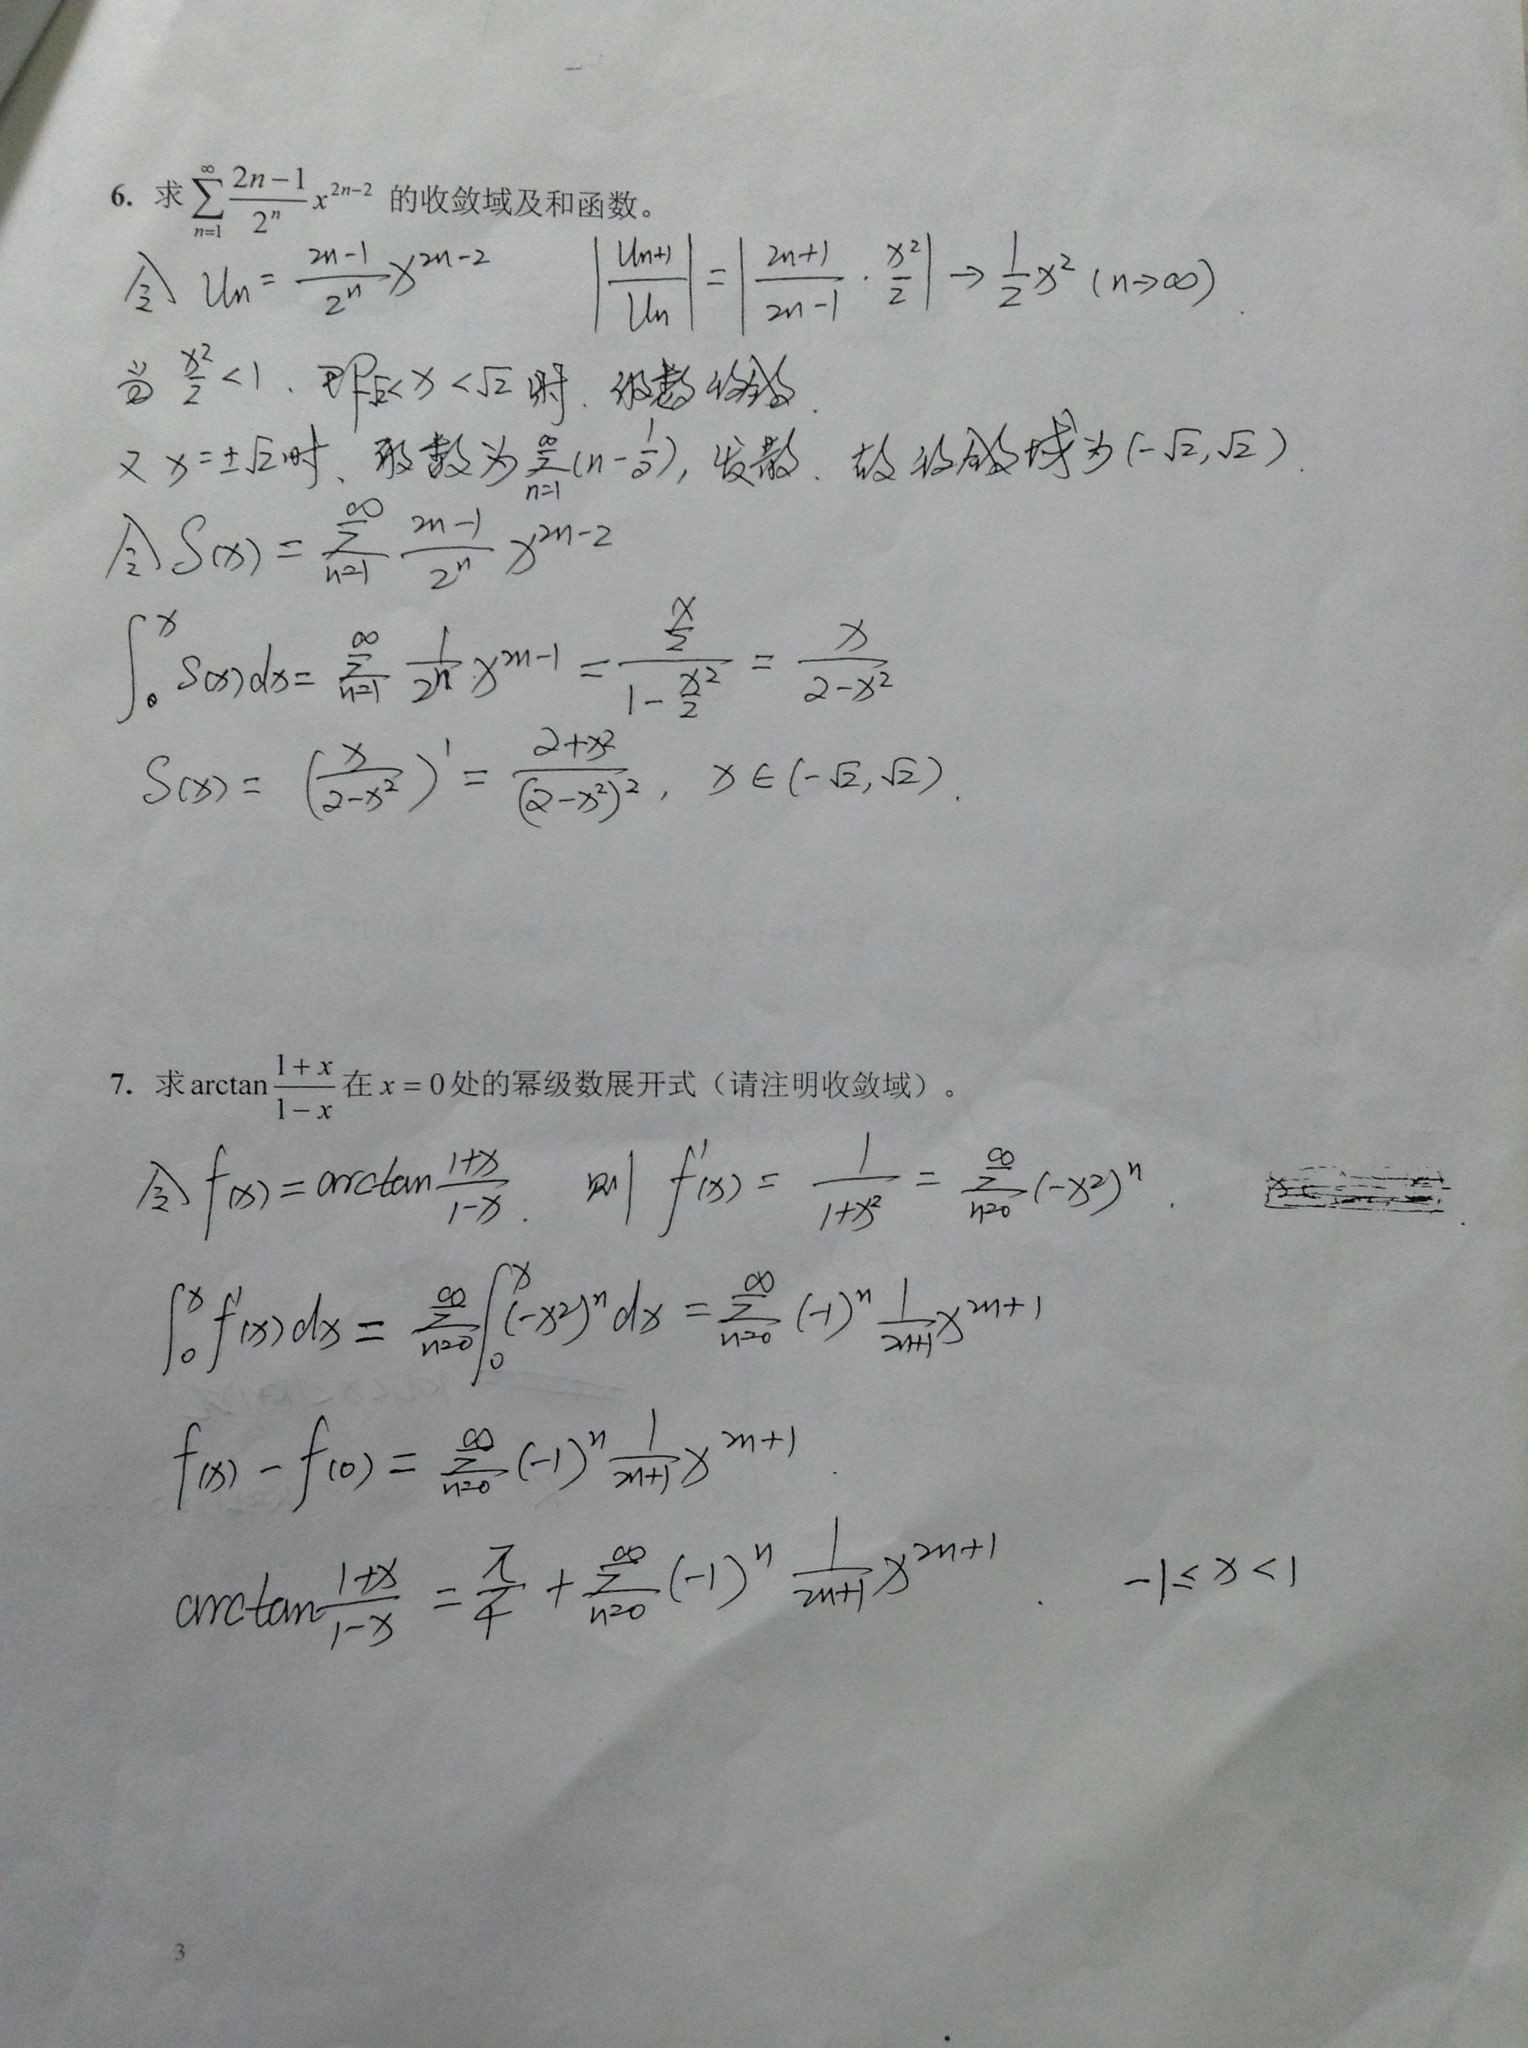 6. 求 $\sum_{n=1}^{\infty}\frac{2n-1}{2^n}x^{2n-2}$ 的收敛域及和函数。
令 $U_n=\frac{2n-1}{2^n}x^{2n-2}$ $\left|\frac{U_{n+1}}{U_n}\right|=\left|\frac{2n+1}{2n-1}\cdot\frac{x^2}{2}\right|\to\frac{1}{2}x^2$ $(n\to\infty)$
当 $\frac{x^2}{2}<1$, 即 $-\sqrt{2}<x<\sqrt{2}$ 时, 级数收敛.
又 $x=\pm\sqrt{2}$ 时, 级数为 $\sum_{n=1}^{\infty}(n-\frac{1}{2})$, 发散. 故收敛域为 $(-\sqrt{2},\sqrt{2})$.
令 $S(x)=\sum_{n=1}^{\infty}\frac{2n-1}{2^n}x^{2n-2}$
$\int_0^x S(x)dx=\sum_{n=1}^{\infty}\frac{1}{2^n}x^{2n-1}=\frac{\frac{x}{2}}{1-\frac{x^2}{2}}=\frac{x}{2-x^2}$
$S(x)=\left(\frac{x}{2-x^2}\right)'=\frac{2+x^2}{(2-x^2)^2}$, $x\in(-\sqrt{2},\sqrt{2})$.
7. 求 $\arctan\frac{1+x}{1-x}$ 在 $x=0$ 处的幂级数展开式（请注明收敛域）。
令 $f(x)=\arctan\frac{1+x}{1-x}$. 则 $f'(x)=\frac{1}{1+x^2}=\sum_{n=0}^{\infty}(-x^2)^n$.
$\int_0^x f'(x)dx=\sum_{n=0}^{\infty}\int_0^x(-x^2)^n dx=\sum_{n=0}^{\infty}(-1)^n\frac{1}{2n+1}x^{2n+1}$
$f(x)-f(0)=\sum_{n=0}^{\infty}(-1)^n\frac{1}{2n+1}x^{2n+1}$.
$\arctan\frac{1+x}{1-x}=\frac{\pi}{4}+\sum_{n=0}^{\infty}(-1)^n\frac{1}{2n+1}x^{2n+1}$. $-1\le x<1$
3